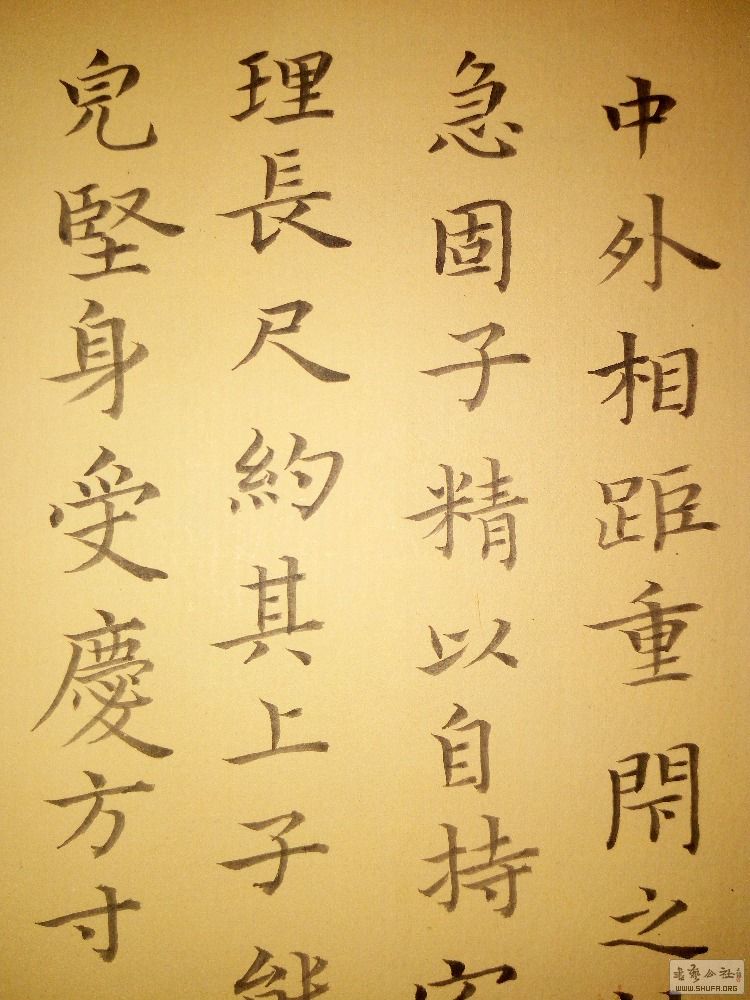 中外相距重閇之
急固子精以自持宅
理長尺約其上子能
皃堅身受慶方寸
WWW.SHUFA.ORG